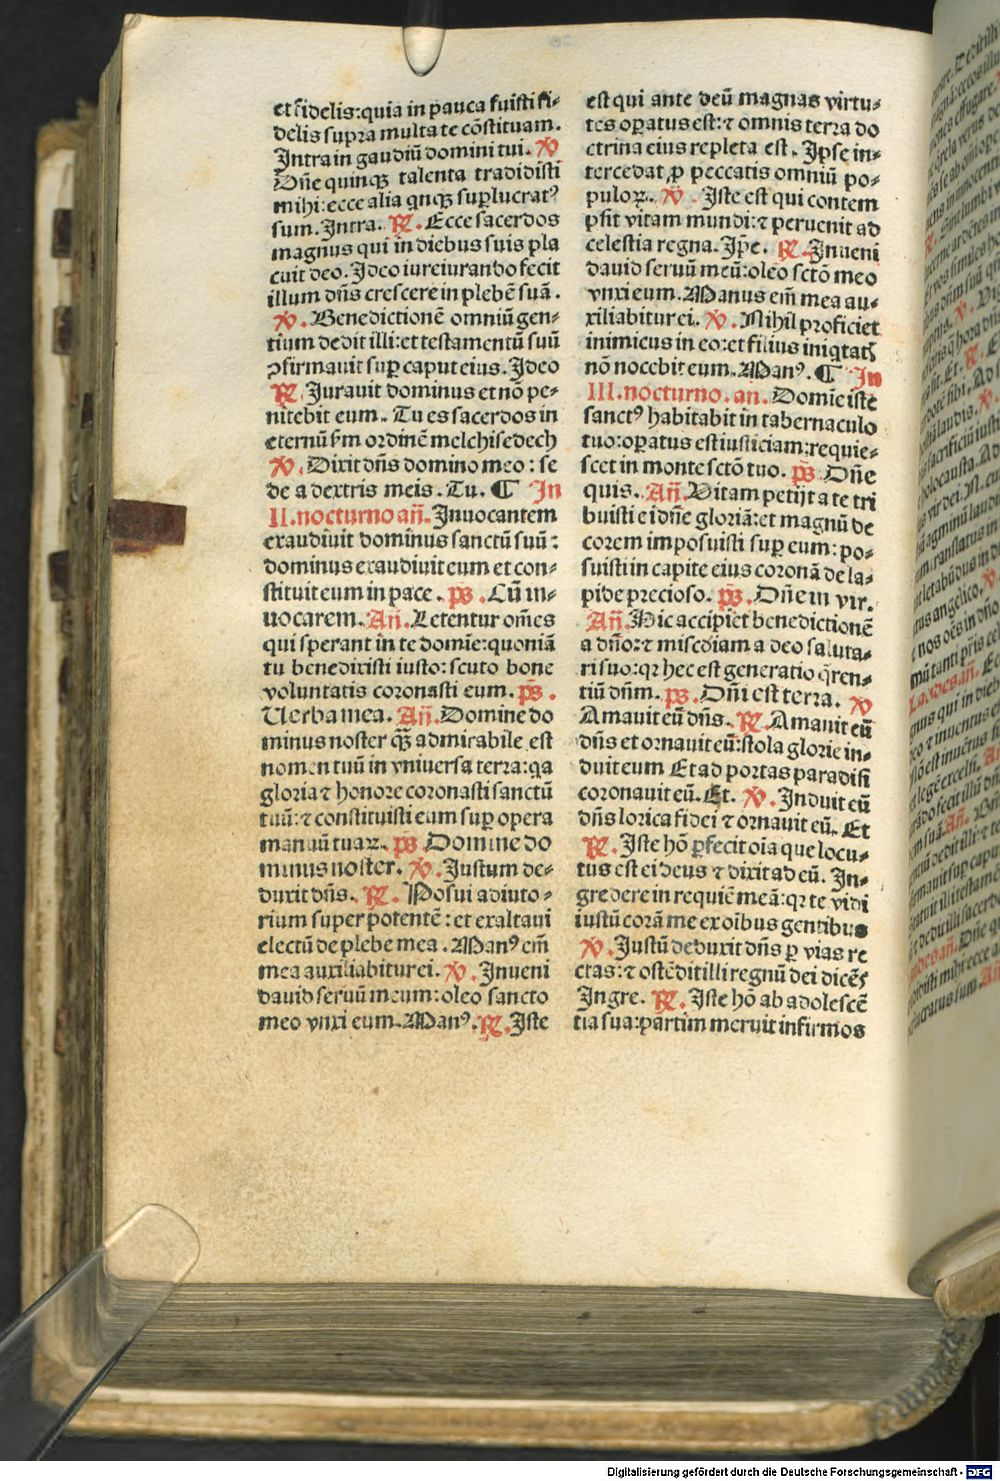 et fidelis:quia in pauca fuisti fi⸗
delis supra multa te cōstituam.
Intra in gaudiū domini tui. ℣
Dn̄e quinqꝫ talenta tradidisti
mihi:ecce alia qnqꝫ suꝑlucratꝰ
sum. Intra. ℟. Ecce sacerdos
magnus qui in diebus suis pla
cuit deo. Ideo iureiurando fecit
illum dn̄s crescere in plebē suā.
℣. Benedictionē omniū gen⸗
tium dedit illi:et testamentū suū
ꝯfirmauit suꝑ caput eius. Ideo
℟. Iurauit dominus et nō pe⸗
nitebit eum. Tu es sacerdos in
eternū ẜm ordinē melchisedech
℣. Dixit dn̄s domino meo: se
de a dextris meis. Tu. ¶ In
II. nocturno an̄. Inuocantem
exaudiuit dominus sanctū suū:
dominus exaudiuit eum et con⸗
stituit eum in pace. p̄s. Cū in⸗
uocarem. An̄. Letentur om̄es
qui sperant in te domīe:quoniā
tu benedixisti iusto: scuto bone
voluntatis coronasti eum. p̄s.
Uerba mea. An̄. Domine do
minus noster qꝫ admirabile est
nomen tuū in vniuersa terra:qa
gloria ⁊ honore coronasti sanctū
tuū:⁊ constituisti eum suꝑ opera
manuū tuaꝝ. p̄s Domine do
minus noster. ℣. Iustum de⸗
duxit dn̄s. ℟. Posui adiuto⸗
rium super potentē: et exaltaui
electū de plebe mea. Manꝰ em̄
mea auxiliabitur ei. ℣. Inueni
dauid seruū meum: oleo sancto
meo vnxi eum. Manꝰ. ℟. Iste
est qui ante deū magnas virtu⸗
tes oꝑatus est:⁊ omnis terra do
ctrina eius repleta est. Ipse in⸗
tercedat ꝓ peccatis omniū po⸗
puloꝝ. ℣. Iste est qui contem
psit vitam mundi:⁊ peruenit ad
celestia regna. Ip̄e. ℟. Inueni
dauid seruū meū:oleo sctō meo
vnxi eum. Manus em̄ mea au⸗
xiliabitur ei. ℣. Nihil proficiet
inimicus in eo:et filius iniqtatꝭ
nō nocebit eum. Manꝰ. ¶ In
III. nocturno. an̄. Domīe iste
sanctꝰ habitabit in tabernaculo
tuo:oꝑatus est iusticiam:requie⸗
scet in monte sctō tuo. p̄s Dn̄e
quis. An̄. Vitam petijt a te tri
buisti ei dn̄e gloriā:et magnū de
corem imposuisti suꝑ eum: po⸗
suisti in capite eius coronā de la⸗
pide precioso. p̄s. Dn̄e in vir.
An̄. Hic accipiet benedictionē
a dn̄o:⁊ misc̄diam a deo saluta⸗
ri suo:qꝛ hec est generatio q̄ren⸗
tiū dn̄m. p̄s. Dn̄i est terra. ℣
Amauit eū dn̄s. ℟. Amauit eū
dn̄s et ornauit eū:stola glorie in⸗
duit eum Et ad portas paradisi
coronauit eū. Et. ℣. Induit eū
dn̄s lorica fidei ⁊ ornauit eū. Et
℟. Iste hō ꝑfecit oīa que locu⸗
tus est ei deus ⁊ dixit ad eū. In⸗
gredere in requiē meā:qꝛ te vidi
iustū corā me ex oībus gentibus
℣. Iustū deduxit dn̄s ꝑ vias re
ctas:⁊ ostēdit illi regnū dei dicēs
Ingre. ℟. Iste hō ab adolescē
tia sua:partim meruit infirmos
Digitalisierung gefördert durch die Deutsche Forschungsgemeinschaft - DFG